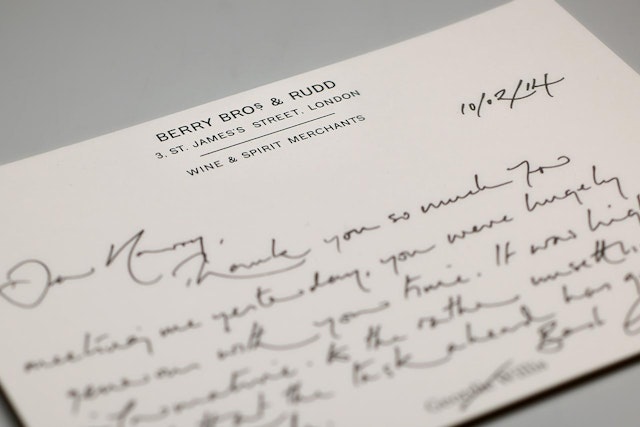 BERRY BROS & RUDD
3, ST. JAMES'S STREET, LONDON
WINE & SPIRIT MERCHANTS
10/02/14
Dear
Thank you so much for
meeting me yesterday, you were hugely
generous with your time. It was
informative. to the rather
that the task ahead has